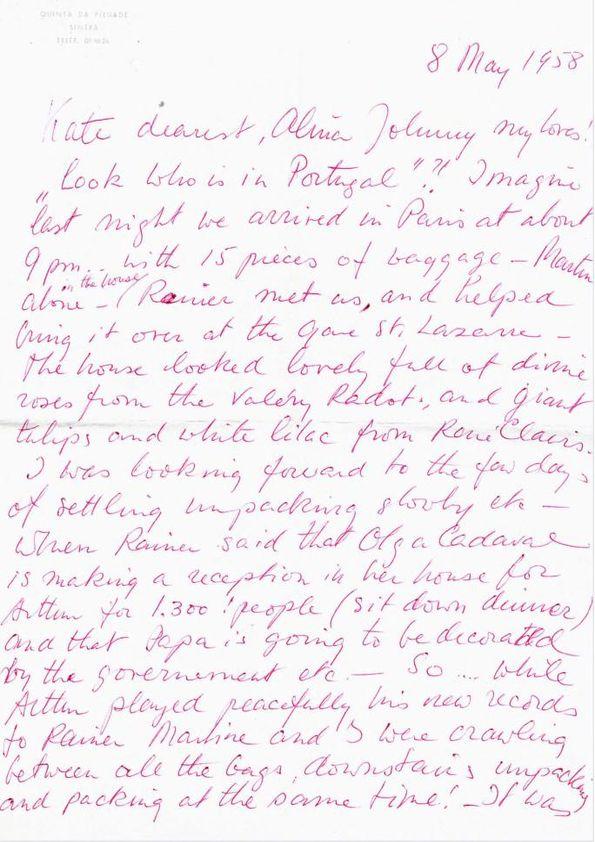 QUINTA DA PIEDADE
SINTRA
8 May 1958
Kate dearest, Alina Johnny my loves!
„Look who is in Portugal"?! Imagine
last night we arrived in Paris at about
9 pm... with 15 pieces of baggage – Martin
in the house
alone – Rainer met us, and helped
bring it over at the Gare St. Lazarre –
The house looked lovely full of divine
roses from the Valery Radots, and giant
tulips and white lilac from René Clairs.
I was looking forward to the few days
of settling unpacking slowly etc –
When Rainer said that Olga Cadaval
is making a reception in her house for
Arthur for 1.300! people (sit down dinner)
and that Papa is going to be decorated
by the governement etc. – So .... while
Arthur played peacefully his new records
to Rainer Martine and I were crawling
between all the bags, downstairs unpacking
and packing at the same time! – It was